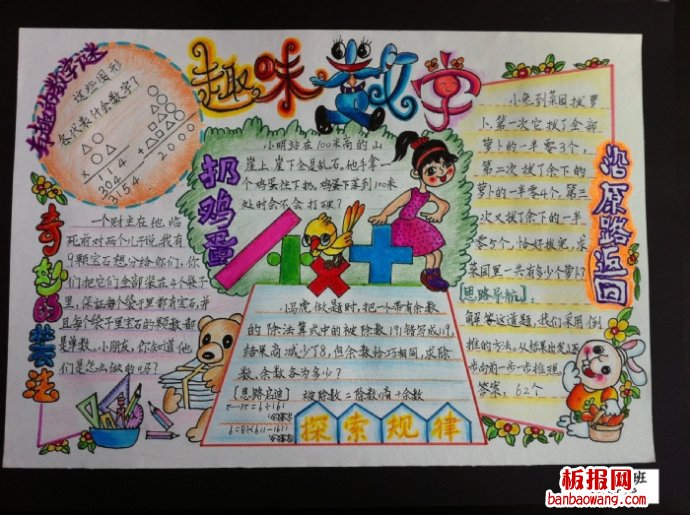 趣味数字
有趣的数学谜
这些图形
各代表什么数字?
△○
○△
× 114
304
3154.
△○
△○
□△○
+ □△△○
2000
扔鸡蛋
小明站在100米高的山
崖上,崖下全是乱石,他手拿一
个鸡蛋往下扔,鸡蛋下落到100米
处时会不会打破?
奇妙的装法
一个财主在他临
死前对两个儿子说,我有
9颗宝石想分给你们,你
们把它们全部装在4个袋子
里,保证每个袋子里都有宝石,并
且每个袋子里宝石的颗数都
是单数,小朋友,你知道他
们是怎么做的吗?
小马虎做题时,把一个带有余数
的除法算式中的被除数191错写成117,
结果商减少了8,但余数恰巧相同,求除
数、余数各为多少?
[思路启迪] 被除数=除数×商+余数
探索规律
沿原路返回
小兔到菜园拔萝
卜.第一次它拔了全部
萝卜的一半零3个,
第二次拔了余下的
萝卜的一半零4个,第三
次又拔了余下的一半
零5个,恰好拔完,求
菜园里一共有多少个萝卜?
[思路导航]
解答这道题,我们采用倒
推的方法,从结果出发,逐
步向前一步一步推理.
答案:62个
班
板报网
banbaowang.com